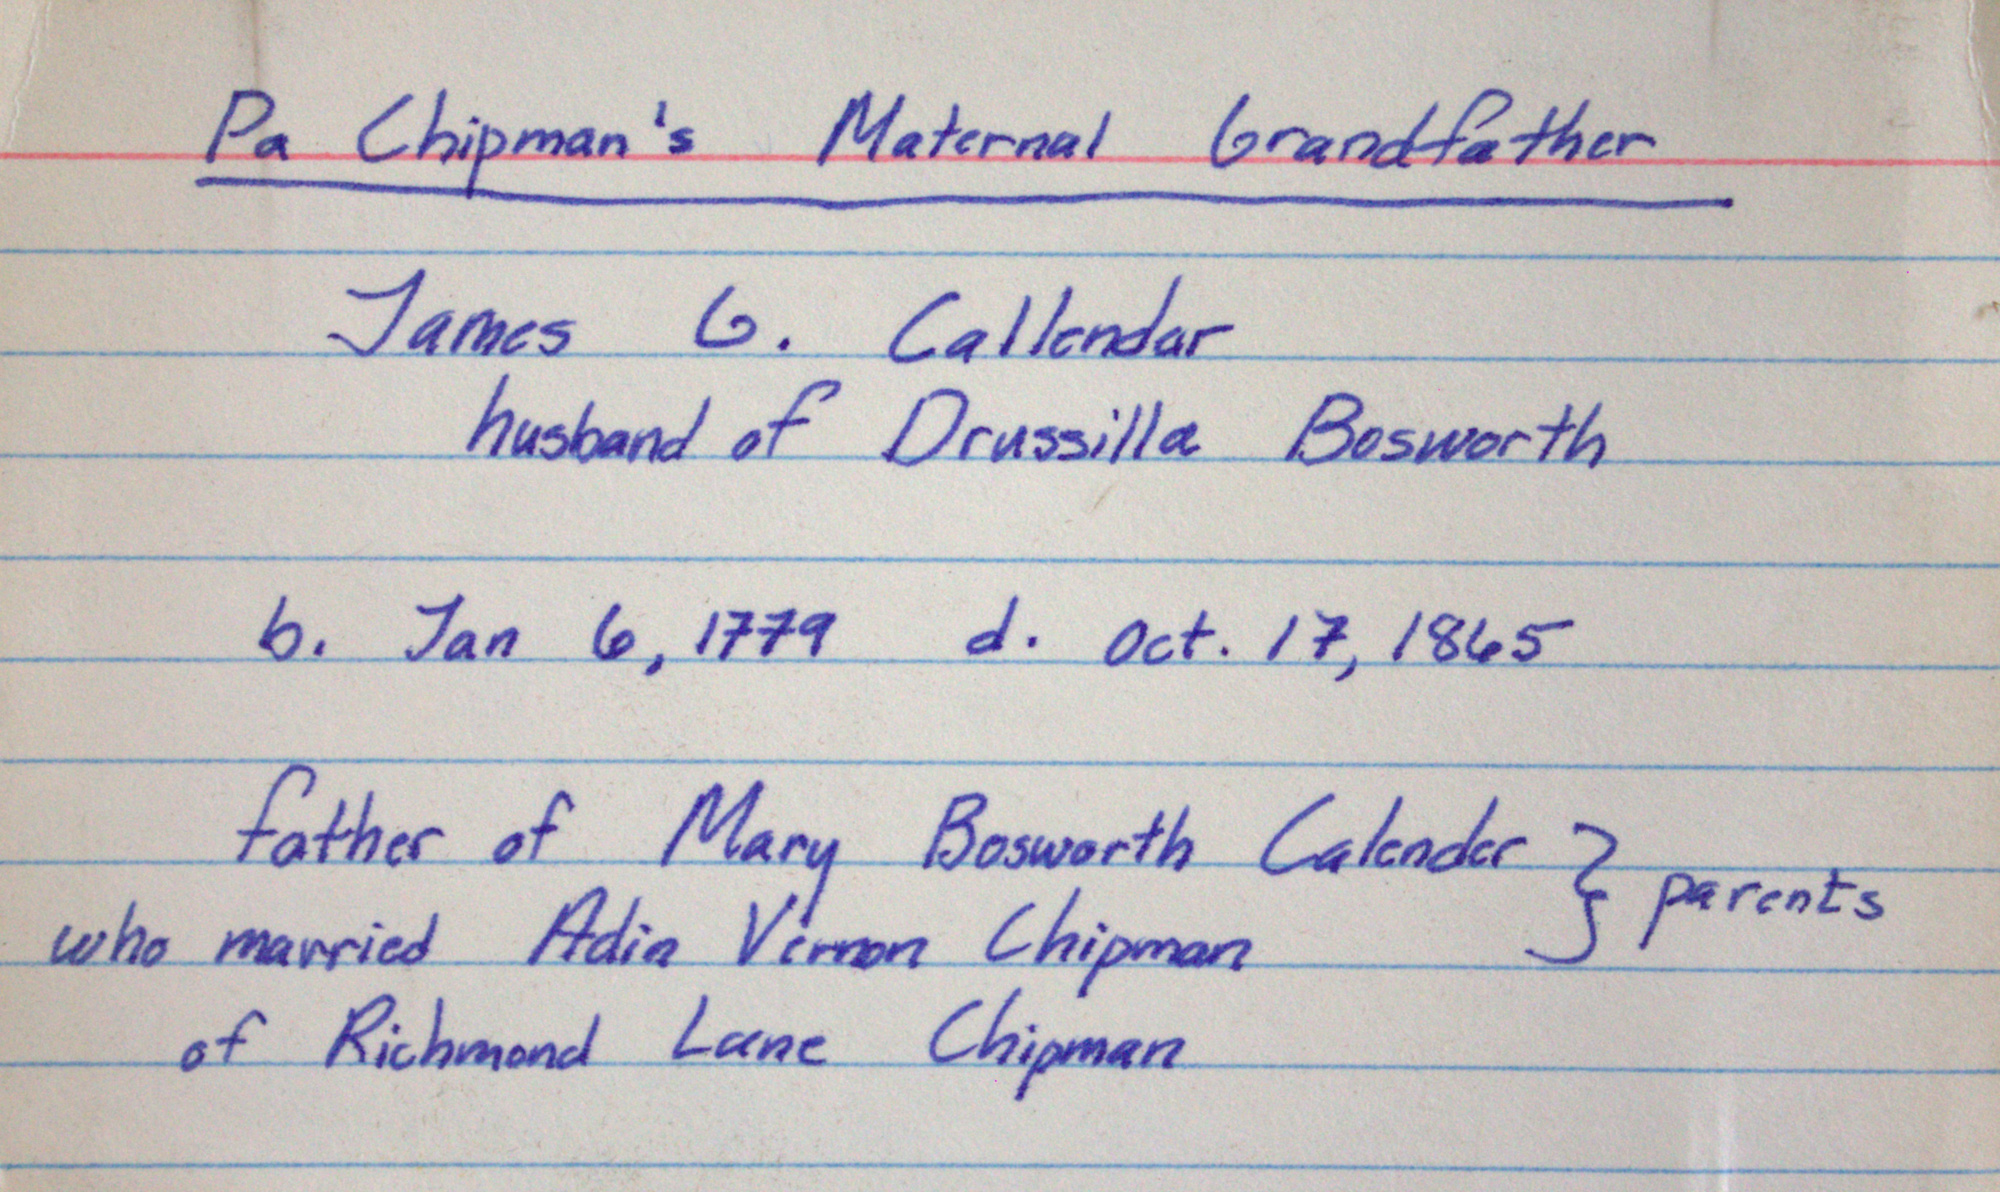 Pa Chipman's Maternal Grandfather
James G. Callendar
husband of Drussilla Bosworth
b. Jan 6, 1779 d. Oct. 17, 1865
father of Mary Bosworth Calender } parents
who married Adin Vernon Chipman
of Richmond Lane Chipman